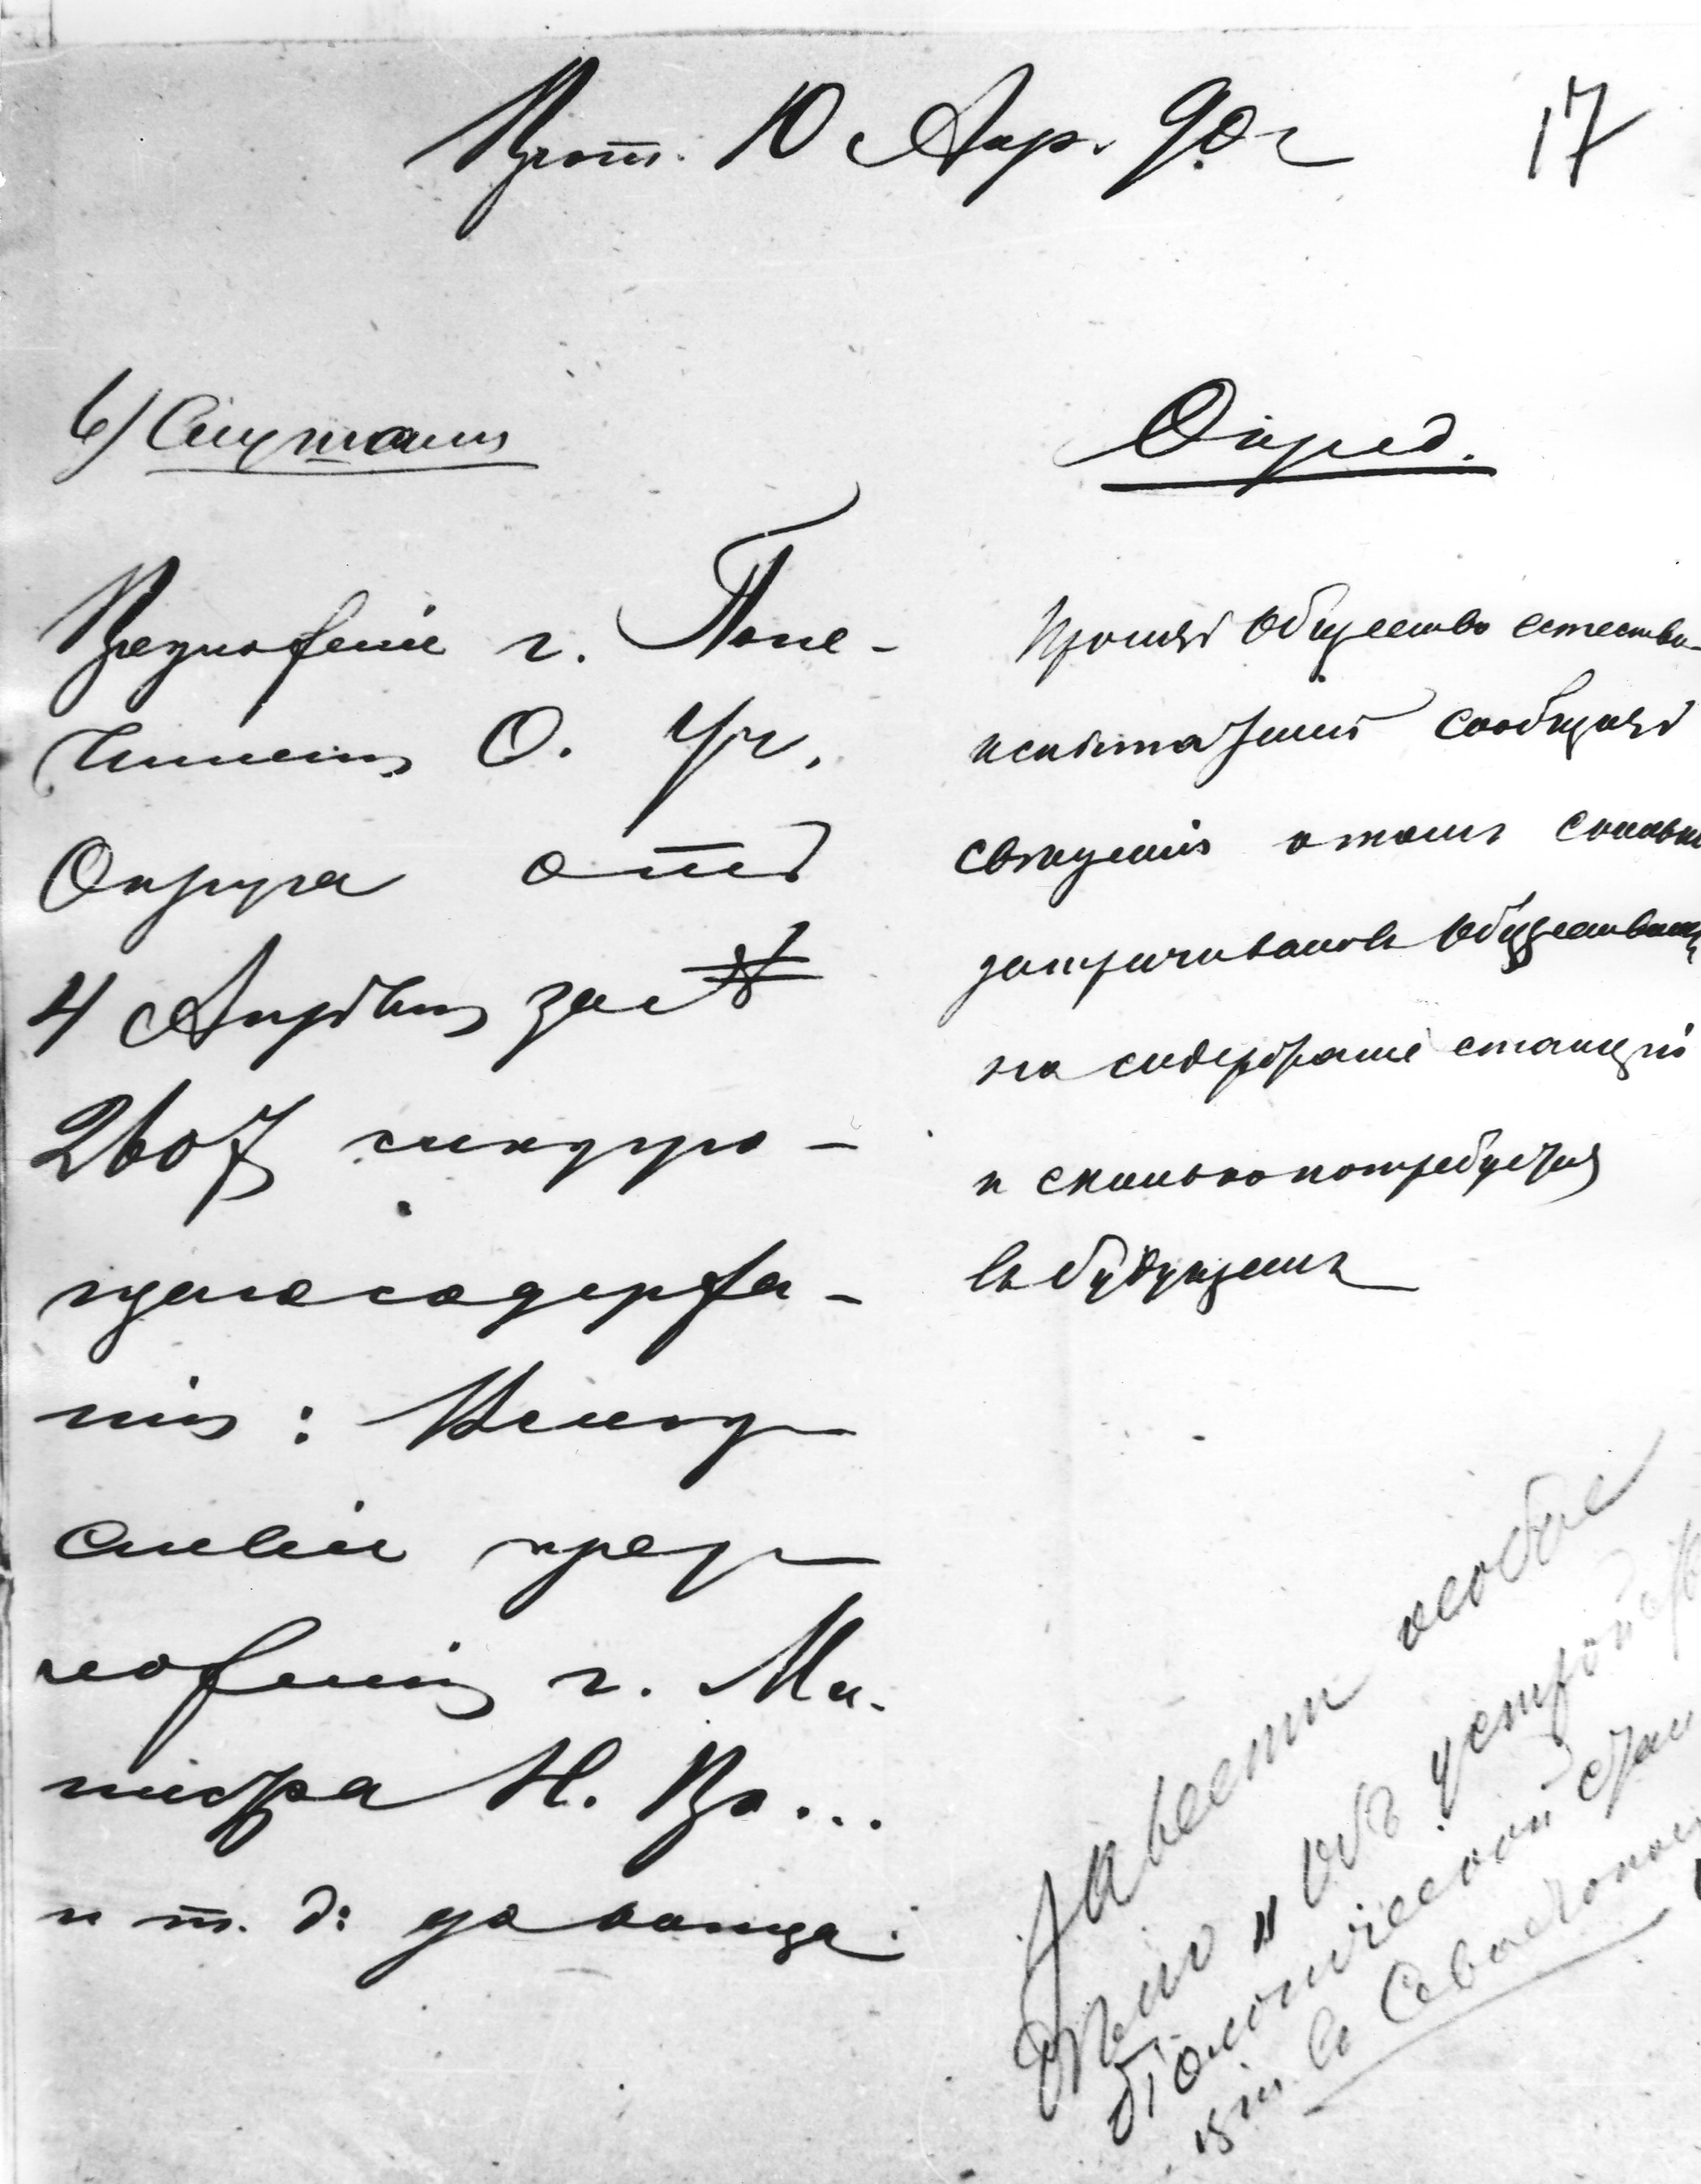 Прот. 10 Апр. 90 г
17
6) Слушали
Предложеніе г. Попе-
чителя О. Уч.
Округа отъ
4 Апрѣля за №
2607 слѣдую-
щаго содержа-
нія: Вслѣд
ствіе пред
ложенія г. Ми-
нистра Н. Пр...
и т. д: до конца.
Опред.
Просить Общество естество-
испытателей сообщить
свѣденія о томъ сколько
затрачивалось Обществомъ
на содержаніе станціи
и сколько потребуется
въ будущемъ
Завести особое
дѣло „Объ устройствѣ
біологической стан
ціи въ Севастополѣ